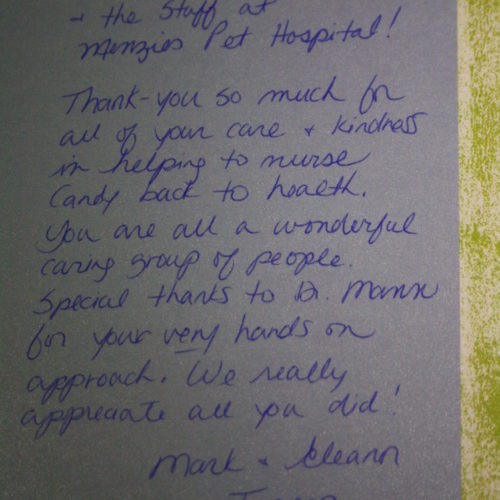 + the staff at
Menzies Pet Hospital!
Thank-you so much for
all of your care + kindness
in helping to nurse
Candy back to health.
You are all a wonderful
caring group of people.
Special thanks to Dr. Mann
for your very hands on
approach. We really
appreciate all you did!
Mark +